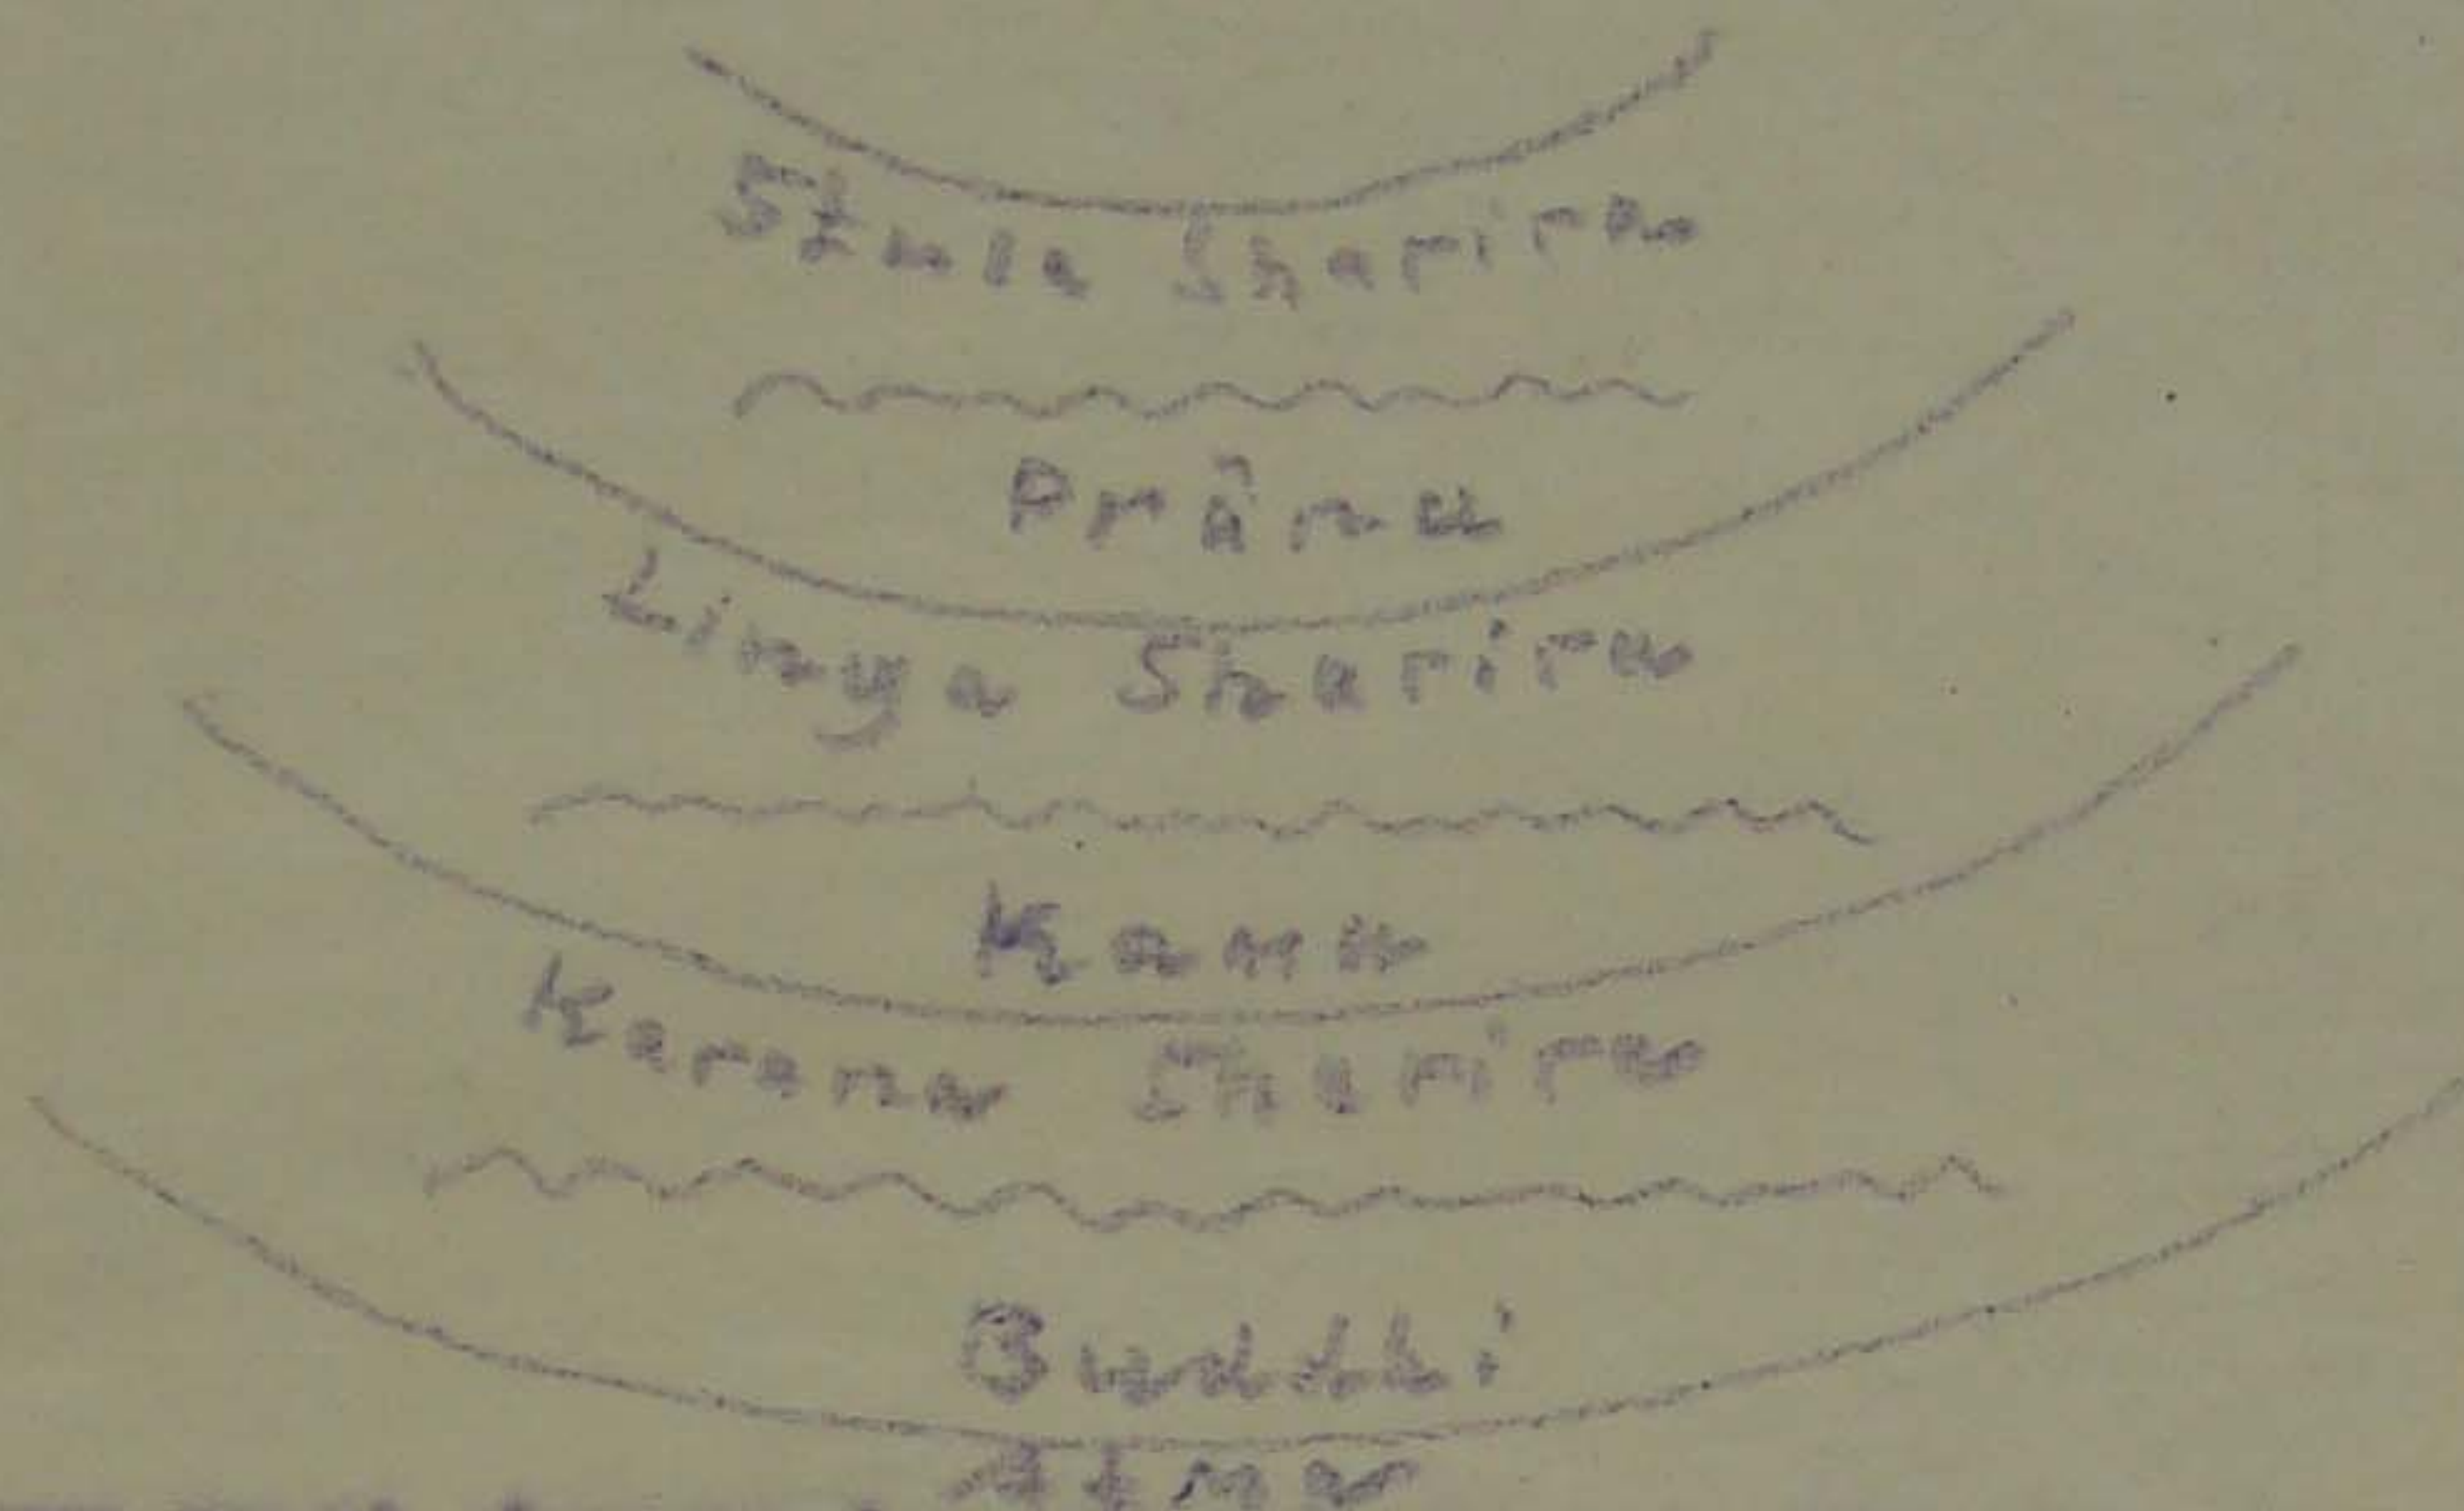 Stula Sharira
Prâna
Linga Sharira
Kama
Karana Sharira
Buddhi
Atma